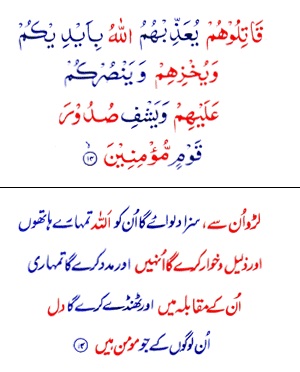 قَاتِلُوْهُمْ يُعَذِّبْهُمُ اللهُ بِاَيْدِيْكُمْ
وَيُخْزِهِمْ وَيَنْصُرْكُمْ
عَلَيْهِمْ وَيَشْفِ صُدُوْرَ
قَوْمٍ مُّؤْمِنِيْنَ ۙ﴿۱۴﴾
لڑو اُن سے، سزا دلوائے گا اُن کو اللہ تمہارے ہاتھوں
اور ذلیل و خوار کرے گا اُنہیں اور مدد کرے گا تمہاری
اُن کے مقابلہ میں اور ٹھنڈے کرے گا دل
اُن لوگوں کے جو مومن ہیں ﴿۱۴﴾